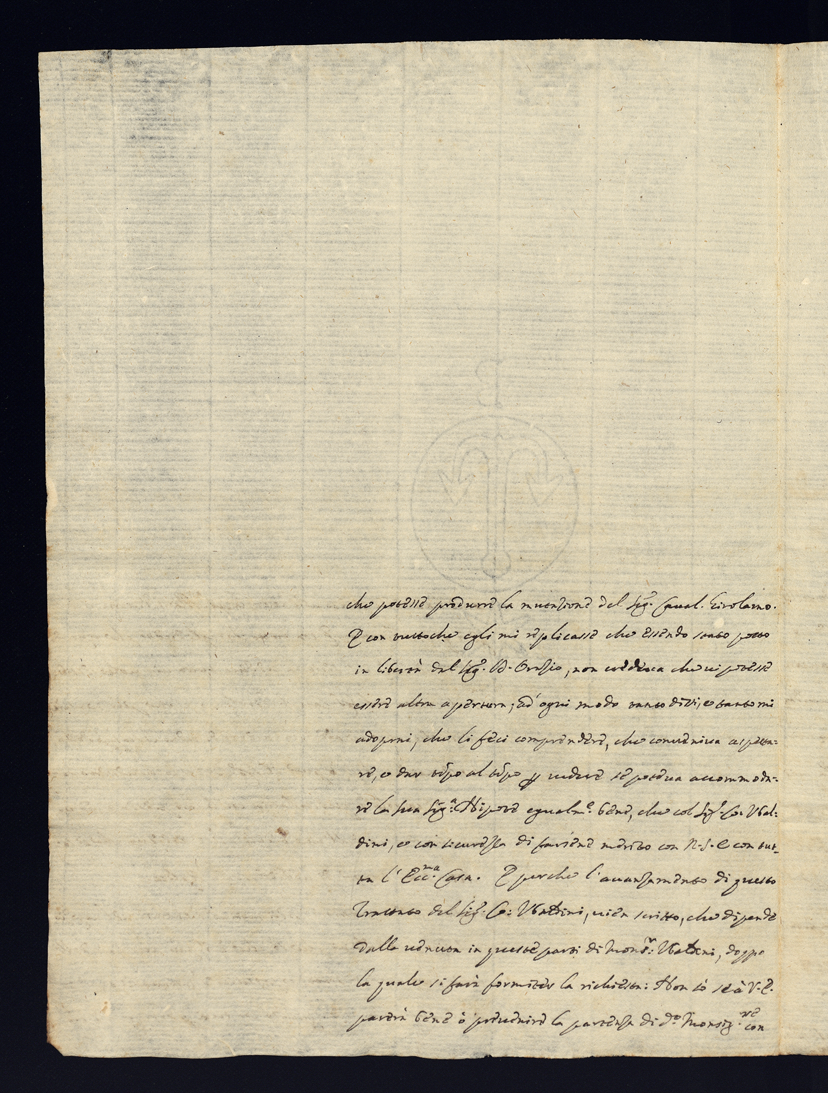 che potesse produrre la mutatione del Sig.r Caual. Girolamo.
E con tuttoche egli mi replicasse che essendo stato posto
in libertà dal Sig.r D. Orasio, non uedeua che ui potesse
essere altra apertura; ad ogni modo tanto dissi, e tanto mi
adoprai, che li feci comprendere, che conueniua aspetta-
re, e dar tẽpo al tẽpo ꝑ uedere se poteua accommoda-
re la sua Sig.ra Nipote egualm.te bene, che col Sig.r Co: Vbal-
dini, e con sicurezza di farsene merito con N. S. e con tut-
ta l'Ecc.ma Casa. E perche l'auanzamento di questo
Trattato del Sig.r Co: Vbaldini, uien scritto, che dipende
dalla uenuta in queste parti di Mons.r Vbaldini, doppo
la quale si farà formiter la richiesta: Non so se à V. E.
parerà bene ò preuenire la partenza di d.o Monsig.re con